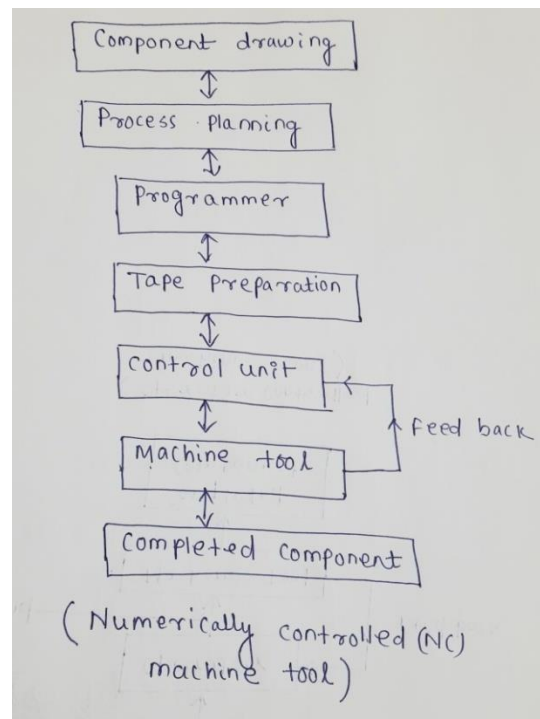 Component drawing
Process planning
Programmer
Tape preparation
control unit
Feed back
Machine tool
Completed component
(Numerically controlled (NC)
machine tool)